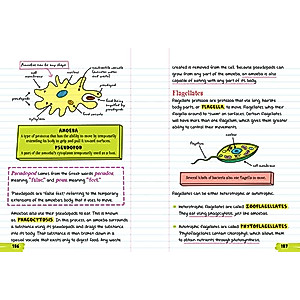 Amoebas can be any shape!
cell membrane
nucleus
vacuole (stores water and food)
pseudopods
food being engulfed by pseudopods
pseudopods
AMOEBA
A type of protozoa that has the ability to move by temporarily
extending its body to grip and pull it toward surfaces.
PSEUDOPOD
A part of the amoeba's cytoplasm temporarily used as a foot.
Pseudopod comes from the Greek words pseudes,
meaning "false," and pous, meaning "feet."
Pseudopods are "false feet" referring to the temporary
extensions of the amoeba's body that it uses to move.
Amoebas also use their pseudopods to eat. This is known
as PHAGOCYTOSIS. In this process, an amoeba surrounds
a substance using its pseudopods and drags the substance
into its body. That substance is then broken down in a
special vacuole that exists only to digest food. Any waste
186
created is removed from the cell. Because pseudopods can
grow from any part of the amoeba, an amoeba is also capable
of eating from any part of its body.
Flagellates
Flagellate protozoa are protozoa that use long hairlike
body parts, or FLAGELLA, to move. Flagellates whip their
flagella around to "swim" on surfaces. Certain flagellates
will have more than one flagellum, which gives them greater
ability to control their movements.
cell membrane
nucleus
flagellum
Several kinds of bacteria also use flagella to move.
Flagellates can be either heterotrophic or autotrophic.
Heterotrophic flagellates are called ZOOFLAGELLATES.
They eat using phagocytosis, just like amoebas.
Autotrophic flagellates are called PHYTOFLAGELLATES.
Phytoflagellates contain chlorophyll, which allows them
to obtain nutrients through photosynthesis.
187